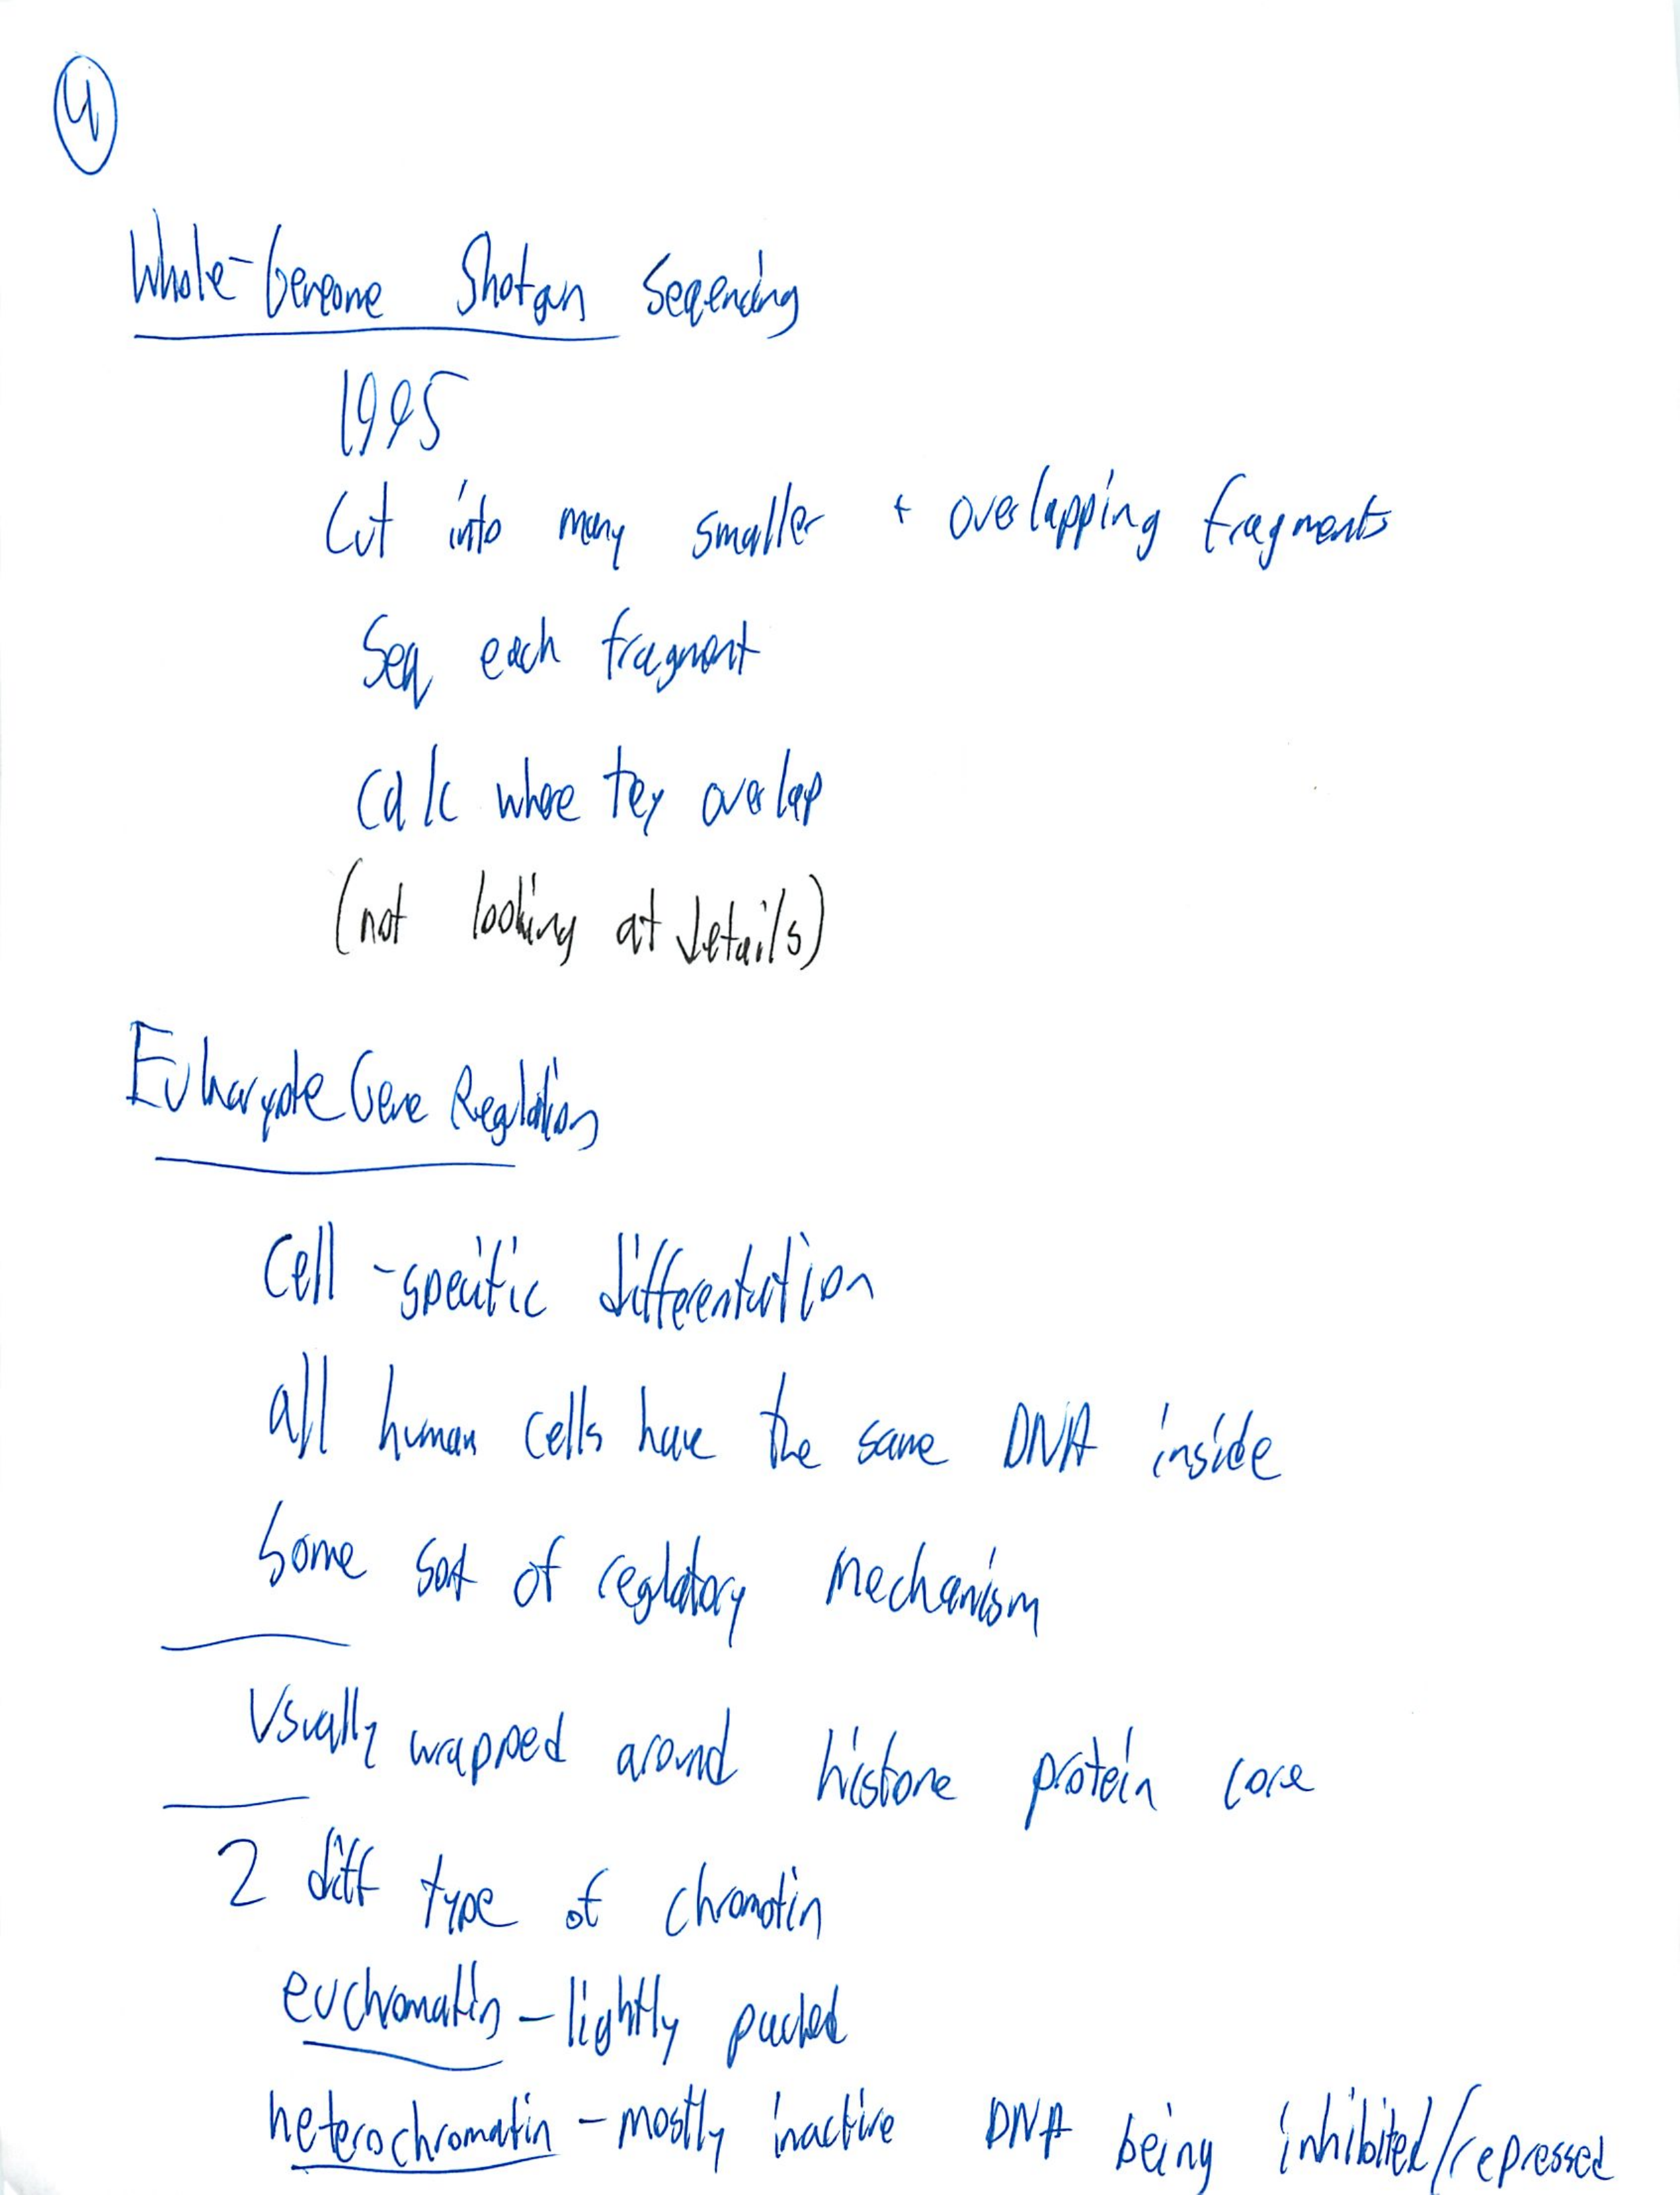 4
Whole-Genome Shotgun Seqencing
1995
Cut into many smaller + overlapping fragments
Seq each fragment
Calc where tey overlap
(not looking at details)
Eukaryote Gene Regulation
Cell-specific differentation
all human cells have the same DNA inside
Some sort of reglatory mechanism
Usually wrapped around histone protein core
2 diff type of chromatin
euchromatin - lightly packed
heterochromatin - mostly inactive DNA being inhibited/repressed